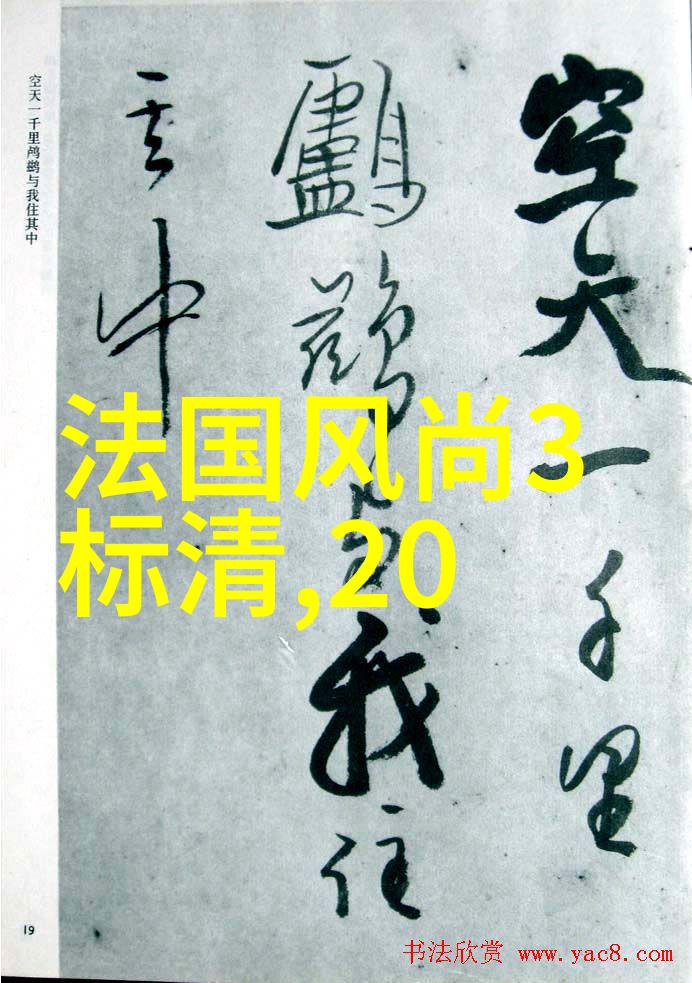 空天一千里
鸕鷀与我住
其中
空天一千里鸬鹚与我住其中
法国风尚3
标清,20
19
书法欣赏 www.yac8.com